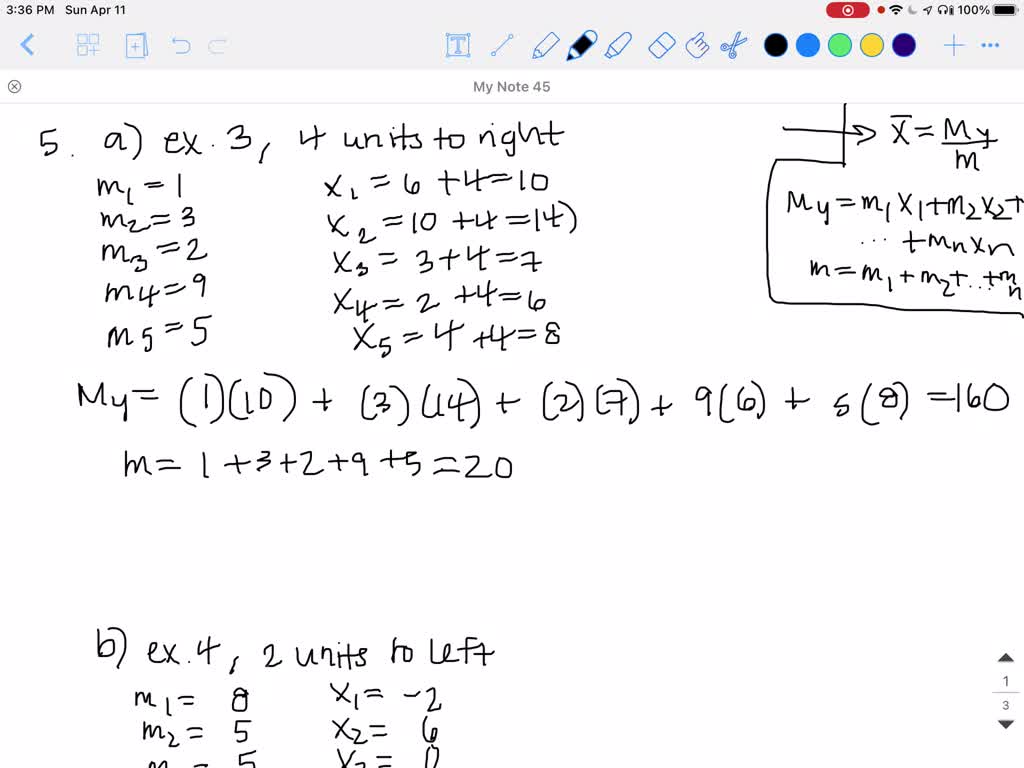 3:36 PM Sun Apr 11
100%
T
My Note 45
5. a) ex. 3, 4 units to right
m1 = 1 x1 = 6 + 4 = 10
m2 = 3 x2 = 10 + 4 = 14)
m3 = 2 x3 = 3 + 4 = 7
m4 = 9 x4 = 2 + 4 = 6
m5 = 5 x5 = 4 + 4 = 8
→ x̄ = My/m
My = m1x1 + m2x2 +
... + mnxn
m = m1 + m2 + ... + mn
My = (1)(10) + (3)(14) + (2)(7) + 9(6) + 5(8) = 160
m = 1 + 3 + 2 + 9 + 5 = 20
b) ex. 4, 2 units to left
m1 = 8 x1 = -2
m2 = 5 x2 = 6
1
3